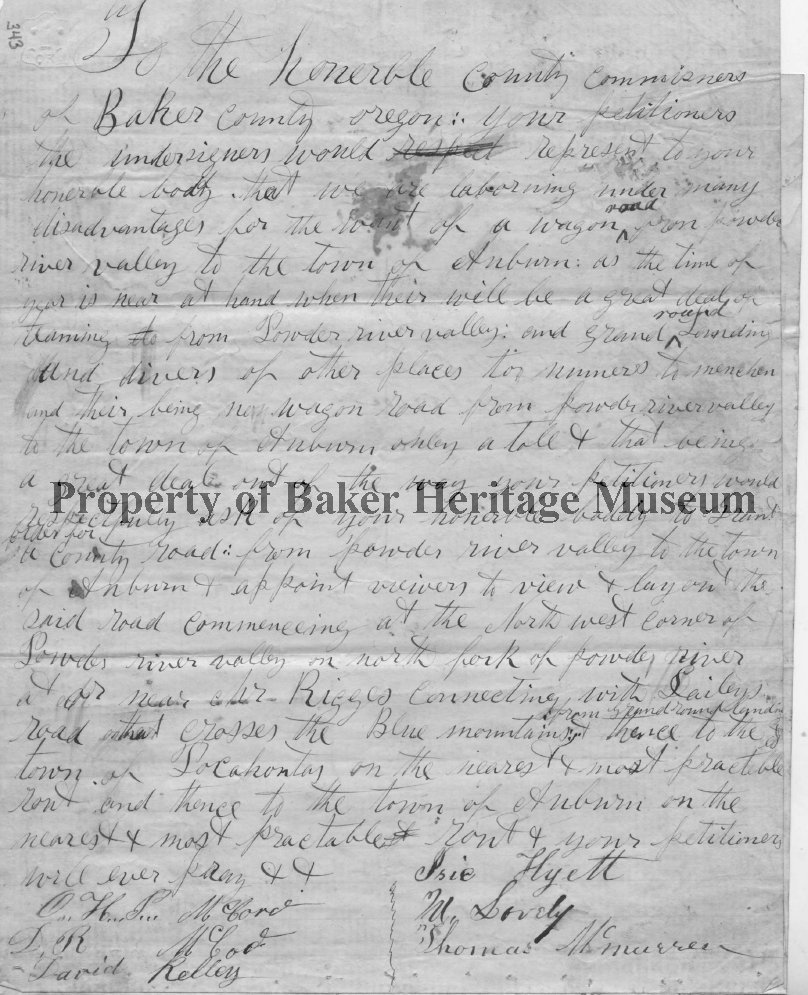 343
To the honerble County commisners
of Baker County oregon: your petitioners
the undersigners would respect represent to your
honerble body that we are laborning under many
disadvantages for the want of a wagon road from powder
river valley to the town of Auburn: as the time of
year is near at hand when their will be a great deal of
teaming to from Powder river valley: and grand round Landing
and divers of other places to numers to menchen
and their being no wagon road from powder river valley
to the town of Auburn onley a toll & that being
a great deal out of the way your petitioners would
Property of Baker Heritage Museum
respectfuly ask of your honerible boddy to Grant
order for
a County road: from powder river valley to the town
of Auburn & appoint viewers to view & lay out the
said road commenceing at the North west corner of
Powder river valley on north fork of powder river
at or near Mr Rigges connecting with Daileys
road that crosses the Blue mountains from grand round landing thence to the
town of Pocahontas on the nearest & most practable
rout and thence to the town of Auburn on the
nearest & most practable rout & your petitioners
will ever pray & &
Isic Hyett
C. H. P. McCord
W. Lovely
D R McCord
Thomas Mcmurren
David Kelley